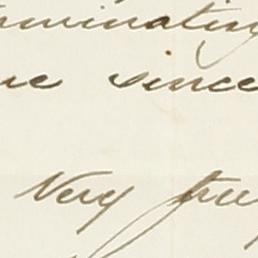 minating
ue since
Very tru